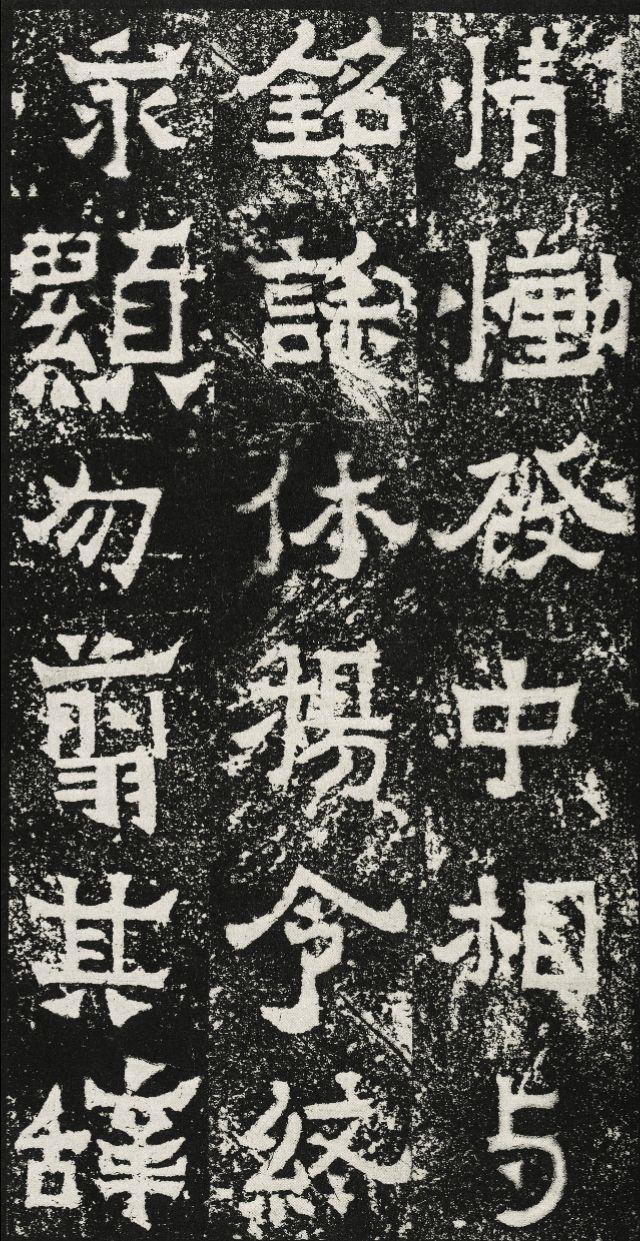 情慟發中相与
銘誄休揚令終
永顯勿翦其辞